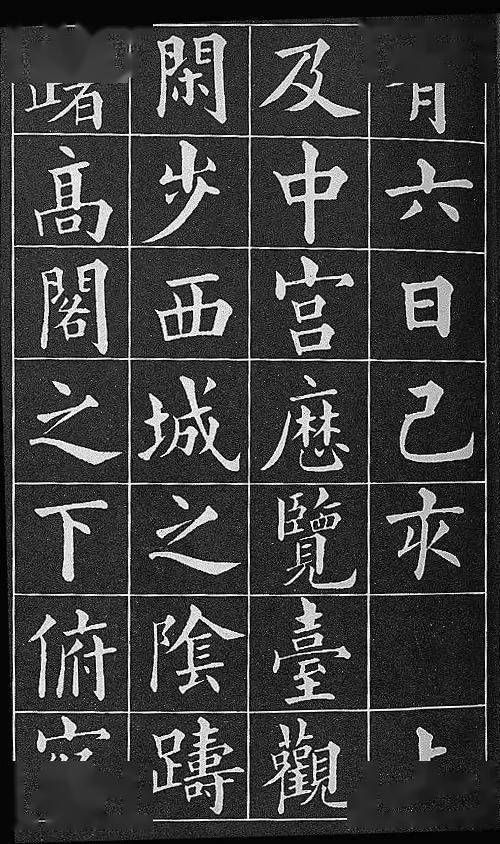 有六日己亥
及中宮歷覽臺觀
閑步西城之陰躊
躇高閣之下俯